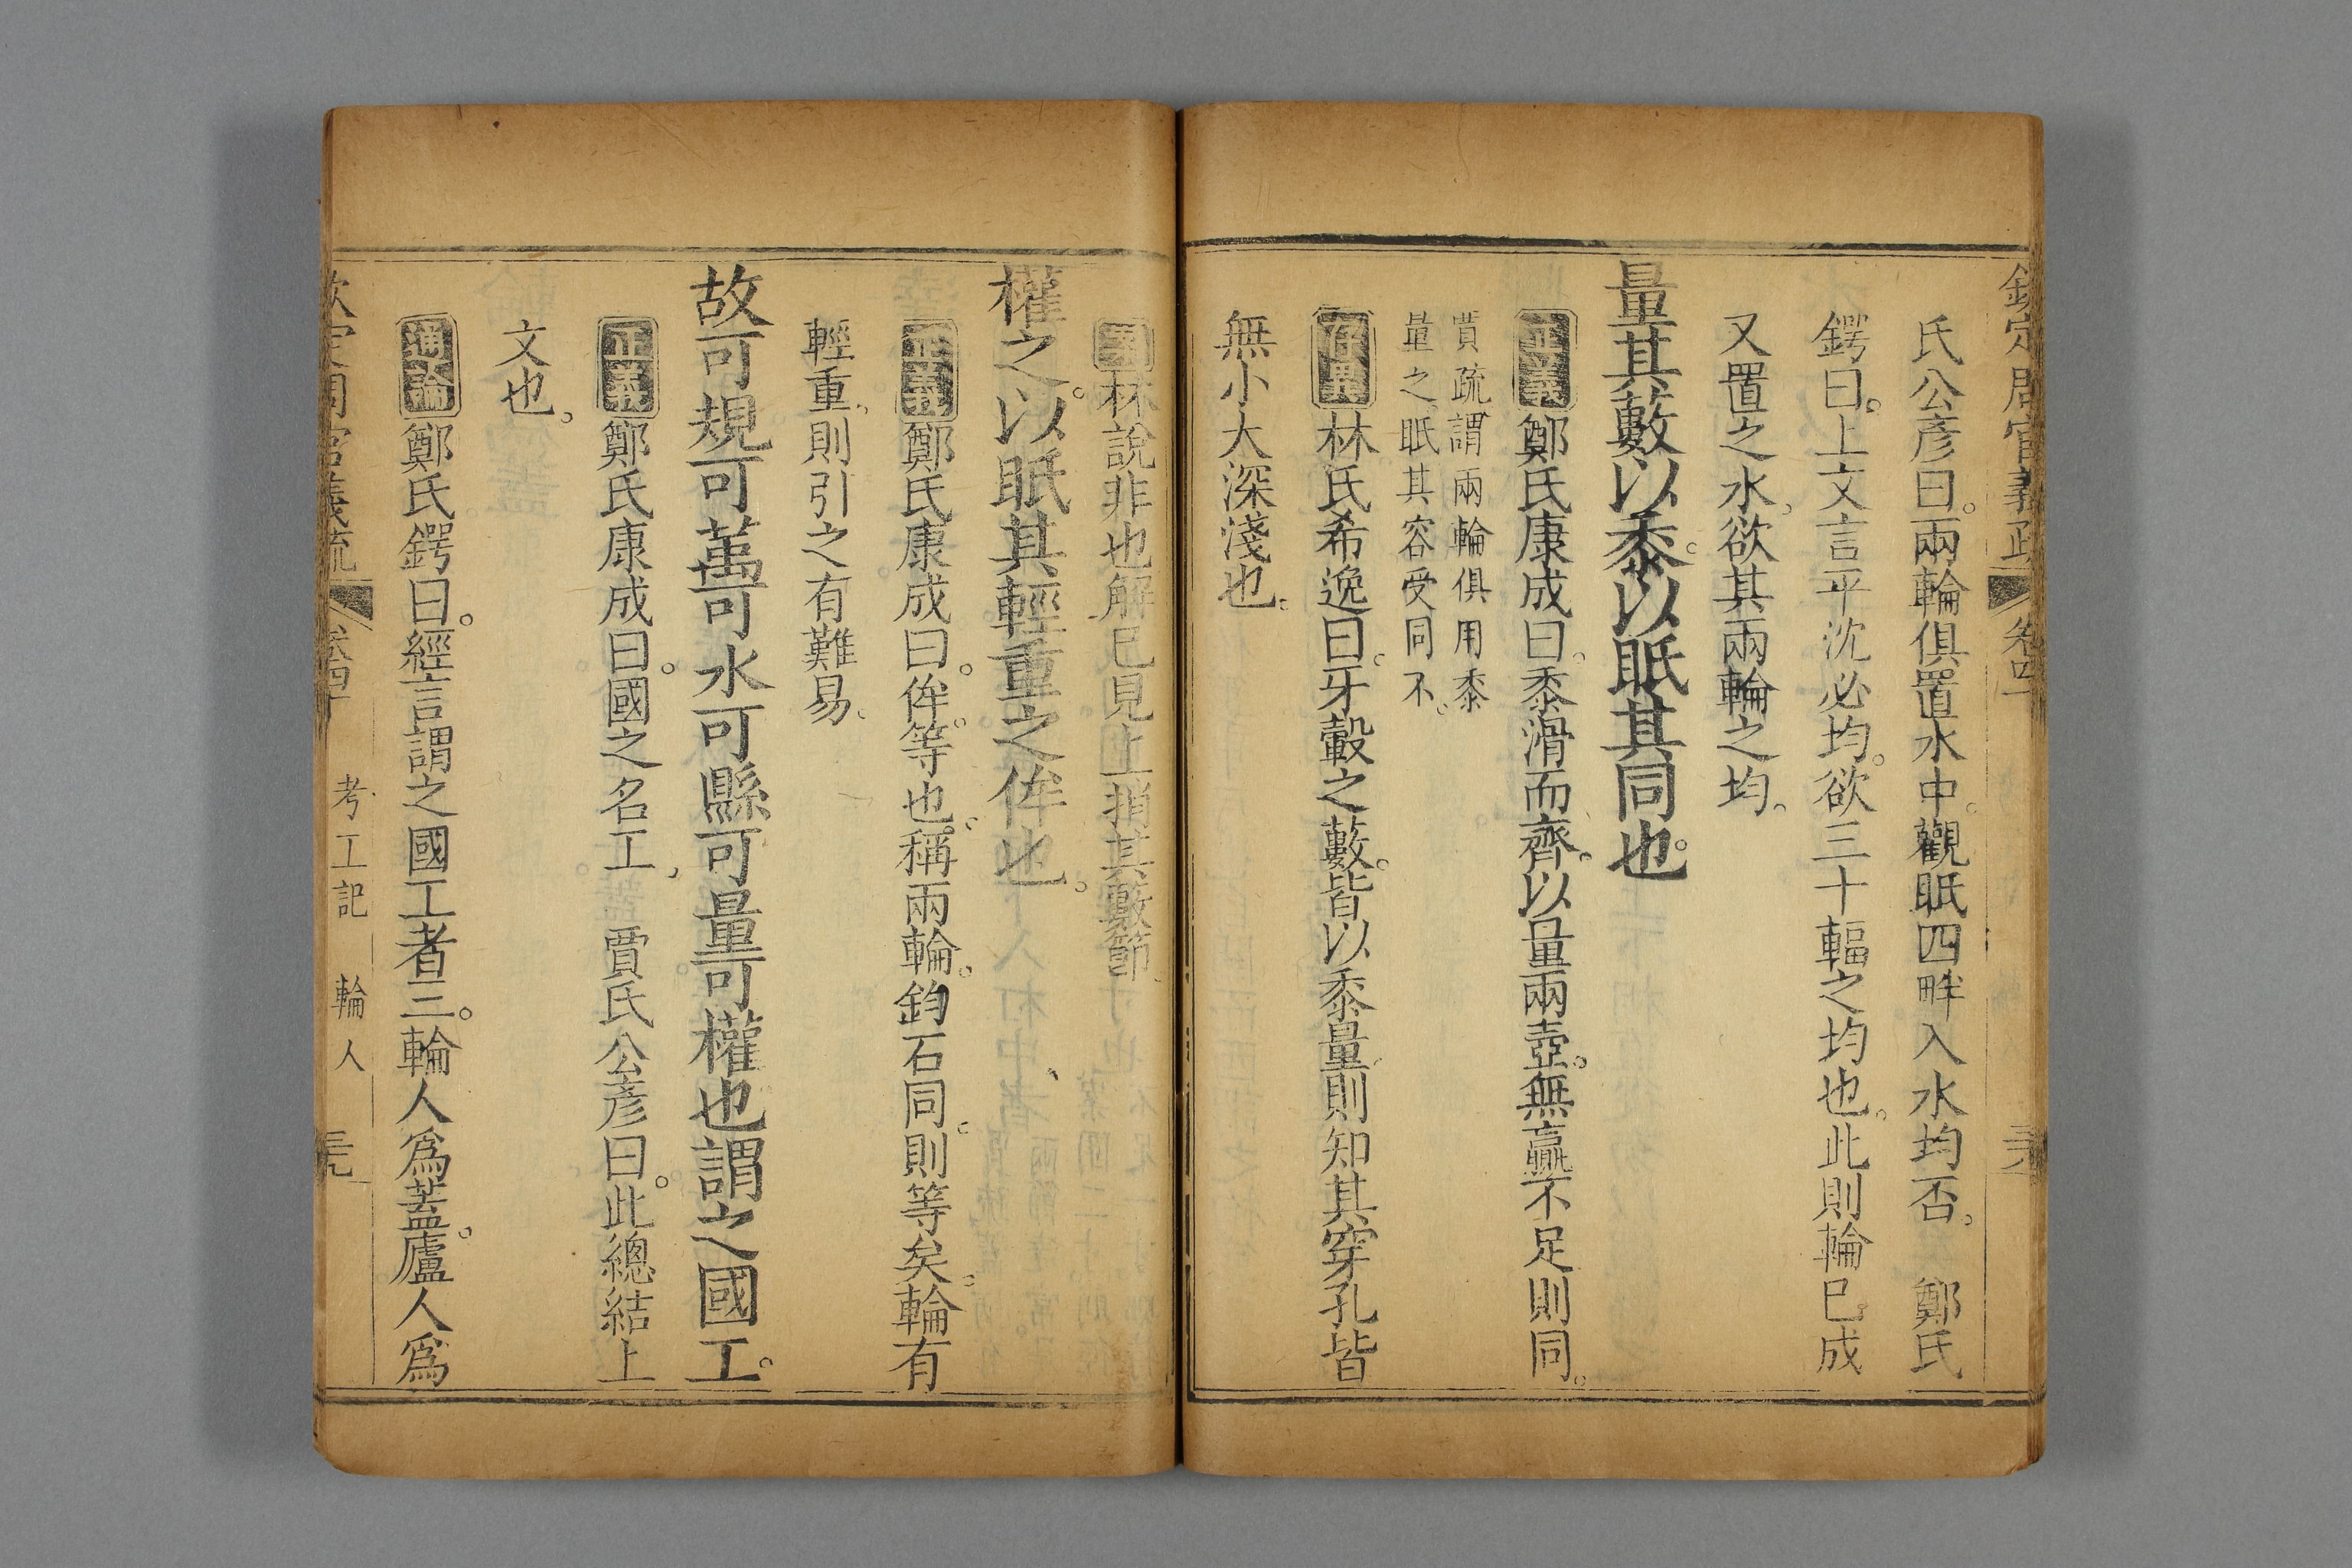 欽定周官義疏 卷四十
氏公彥曰兩輪俱置水中觀眡四畔入水均否 鄭氏
鍔曰上文言平沈必均欲三十輻之均也此則輪巳成
又置之水欲其兩輪之均
量其藪以黍以眡其同也
正義鄭氏康成曰黍滑而齊以量兩壺無贏不足則同
賈疏謂兩輪俱用黍
量之眡其容受同不
存異林氏希逸曰牙轂之藪皆以黍量則知其穿孔皆
無小大深淺也
林說非也解巳見上捎其藪節
權之以眡其輕重之侔也
正義鄭氏康成曰侔等也稱兩輪鈞石同則等矣輪有
輕重則引之有難易
故可規可萬可水可縣可量可權也謂之國工
正義鄭氏康成曰國之名工 賈氏公彥曰此總結上
文也
通論鄭氏鍔曰經言謂之國工者三輪人為蓋廬人為
欽定周官義疏 卷四十 考工記 輪人